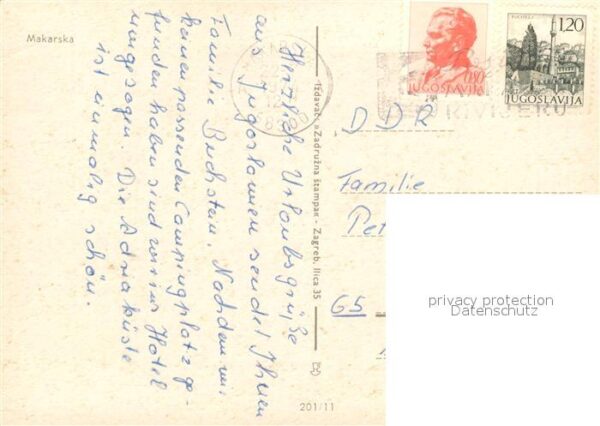 Makarska
Herzliche Urlaubsgrüße
aus Jugoslawien sendet Ihnen
Familie Bechstein. Nachdem wir
keinen passenden Campingplatz ge-
funden haben sind wir ins Hotel
umgezogen. Die Adriaküste
ist einmalig schön.
Izdavač »Zadružna štampa« - Zagreb, Ilica 35
201/11
0.80
JUGOSLAVIJA
1.20
JUGOSLAVIJA
RIVIJERU
DDR
Familie
Pet
65
privacy protection
Datenschutz